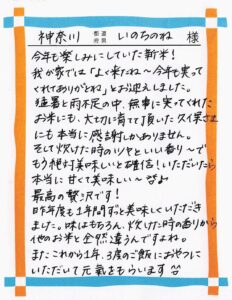 神奈川 都道府県 いのちのね 様
今年も楽しみにしていた新米!
我が家では「よく来たね〜今年も実って
くれてありがとね」とお迎えしました。
猛暑と雨不足の中、無事に実ってくれた
お米にも、大切に育てて頂いた久保さま
にも本当に感謝しかありません。
そして炊けた時のツヤといい香り〜で
もう絶対美味しいと確信!いただいたら
本当に甘くて美味しい〜
最高の贅沢です!
昨年度も1年間ずっと美味しくいただき
ました。味はもちろん、炊けた時の香りから
他のお米と全然違うんですよね。
またこれから1年、3度のご飯におやつに
いただいて元氣をもらいます